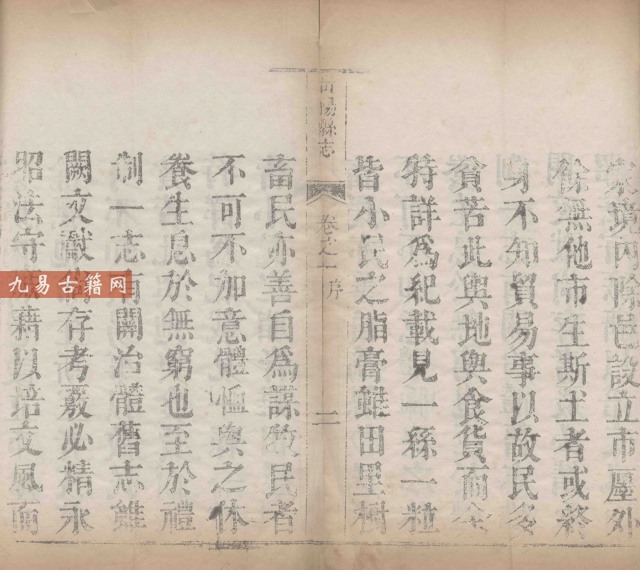 境内除邑設立市廛外
餘無他市生斯土者或終
身不知貿易事以故民多
貧苦此輿地與食貨而余
特詳爲紀載見一絲一粒
皆小民之脂膏雖田里樹
縣志
卷之一
序
二
畜民亦善自爲謀牧民者
不可不加意體恤與之休
養生息於無窮也至於禮
制一志有關治體舊志雖
闕文獻存考覈必精永
昭法守藉以培文風而
九易古籍网